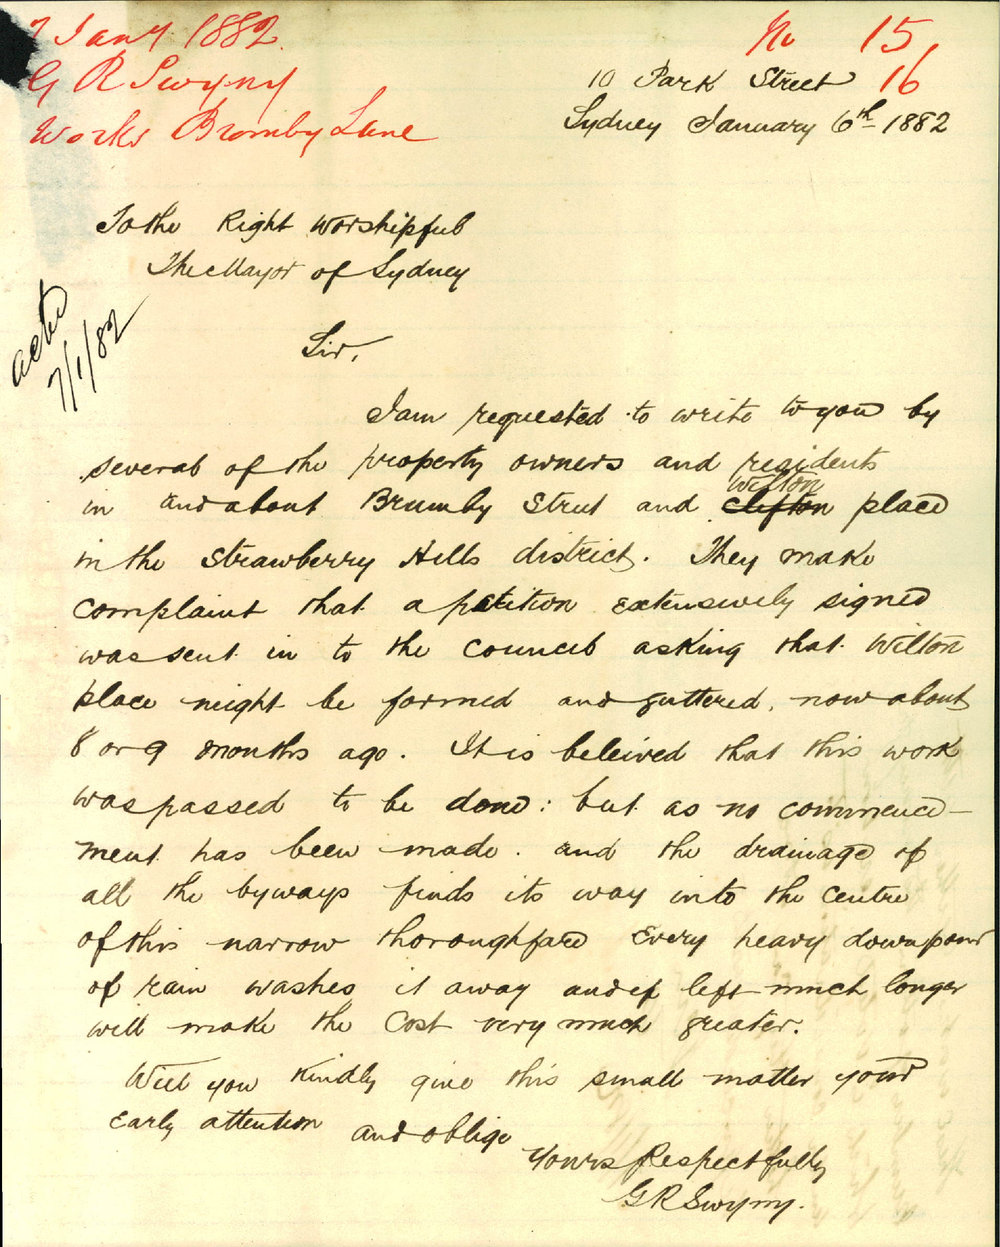 7 Jany 1882.
No 15,
G R Swyny
16
Works Bromby Lane
10 Park Street
Sydney January 6th 1882
To the Right Worshipful
The Mayor of Sydney
ackd
7/1/82
Sir,
I am requested to write to you by
several of the property owners and residents
in and about Brumby Street and clifton Wilton place
in the Strawberry Hills district. They make
complaint that a petition extensively signed
was sent in to the Council asking that Wilton
place might be formed and guttered, now about
8 or 9 months ago. It is beleived that this work
was passed to be done: but as no commence-
ment has been made. and the drainage of
all the byways finds its way into the centre
of this narrow thoroughfare Every heavy downpour
of rain washes it away and if left much longer
will make the Cost very much greater.
Will you Kindly give this small matter your
Early attention and oblige
Yours Respectfully
G R Swyny.